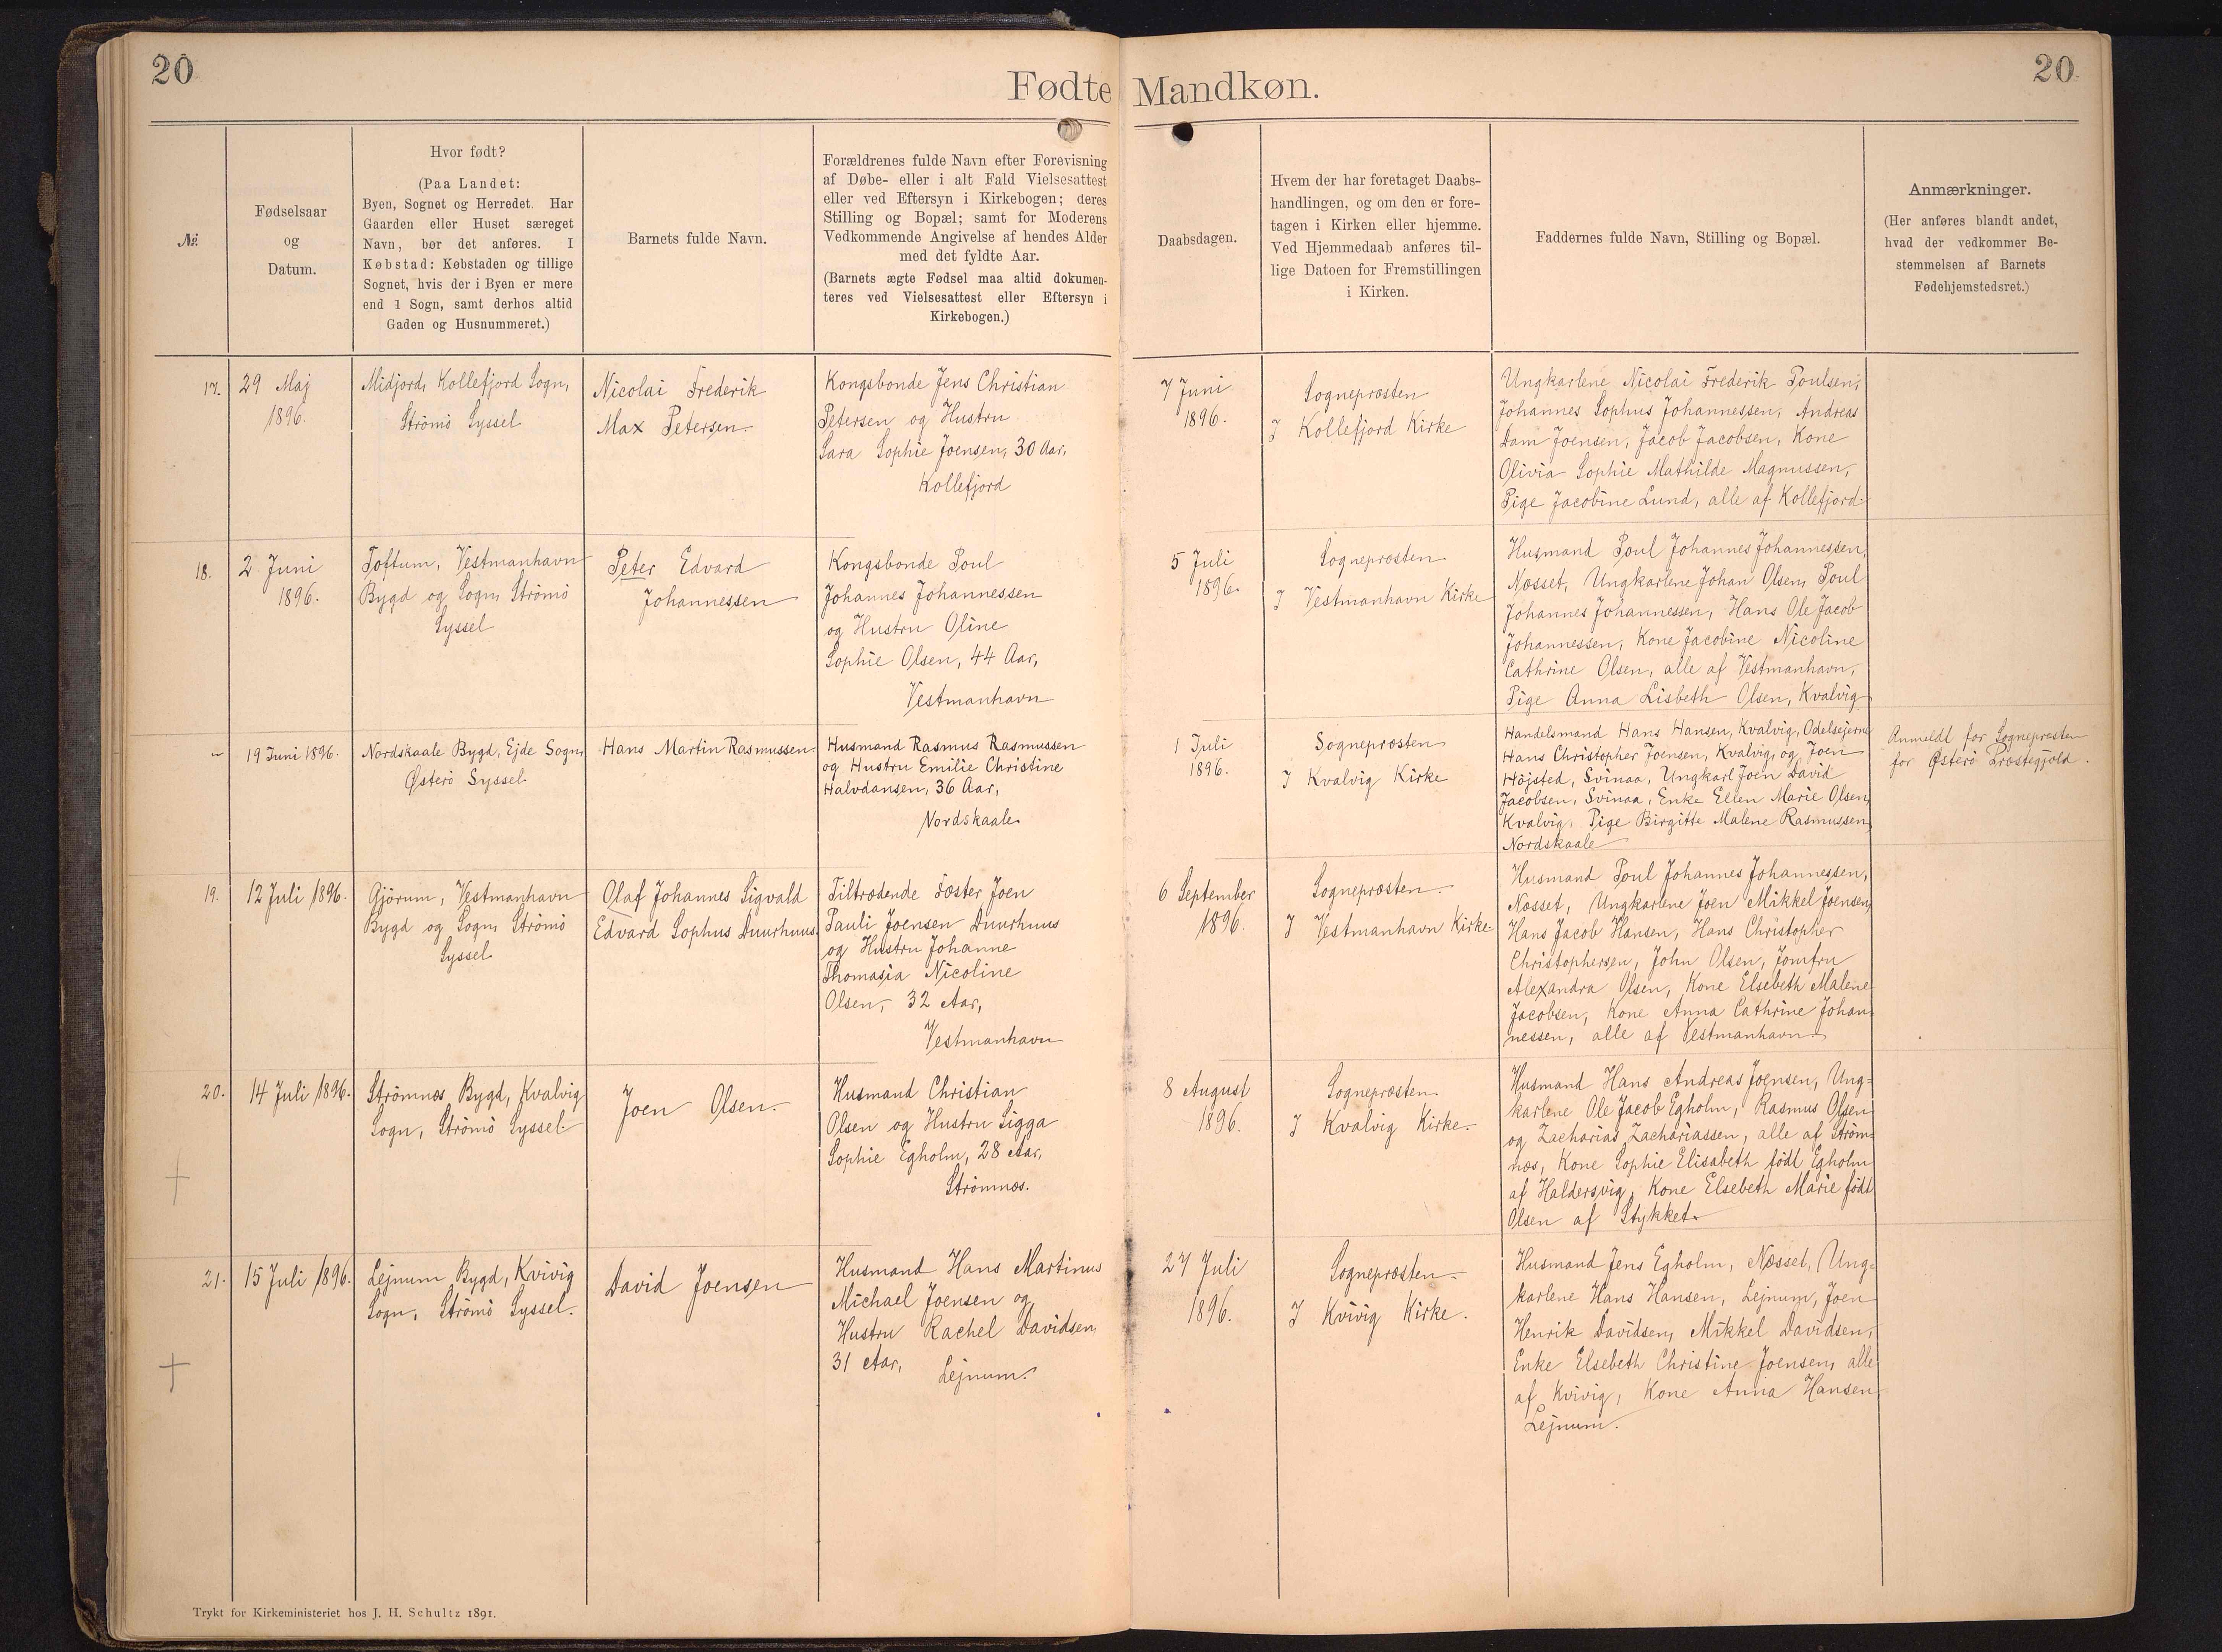 20
20
Fødte Mandkøn.
№.
Fødselsaar
og
Datum.
Hvor født?
(Paa Landet:
Byen, Sognet og Herredet. Har
Gaarden eller Huset særeget
Navn, bør det anføres. I
Købstad: Købstaden og tillige
Sognet, hvis der i Byen er mere
end 1 Sogn, samt derhos altid
Gaden og Husnummeret.)
Barnets fulde Navn.
Forældrenes fulde Navn efter Forevisning
af Døbe- eller i alt Fald Vielsesattest
eller ved Eftersyn i Kirkebogen; deres
Stilling og Bopæl; samt for Moderens
Vedkommende Angivelse af hendes Alder
med det fyldte Aar.
(Barnets ægte Fødsel maa altid dokumen-
teres ved Vielsesattest eller Eftersyn i
Kirkebogen.)
Daabsdagen.
Hvem der har foretaget Daabs-
handlingen, og om den er fore-
tagen i Kirken eller hjemme.
Ved Hjemmedaab anføres til-
lige Datoen for Fremstillingen
i Kirken.
Faddernes fulde Navn, Stilling og Bopæl.
Anmærkninger.
(Her anføres blandt andet,
hvad der vedkommer Be-
stemmelsen af Barnets
Fødehjemstedsret.)
17.
29 Maj
1896.
Midjord, Kollefjord Sogn,
Strømø Syssel
Nicolai Frederik
Max Petersen
Kongsbonde Jens Christian
Petersen og Hustru
Sara Sophie Joensen, 30 Aar,
Kollefjord
7 Juni
1896.
Sognepræsten
I Kollefjord Kirke
Ungkarlene Nicolai Frederik Poulsen,
Johannes Sophus Johannessen, Andreas
Dam Joensen, Jacob Jacobsen, Kone
Olivia Sophie Mathilde Magnussen,
Pige Jacobine Lund, alle af Kollefjord
18.
2 Juni
1896.
Toftum, Vestmanhavn
Bygd og Sogn, Strømø
Syssel
Peter Edvard
Johannessen
Kongsbonde Poul
Johannes Johannessen
og Hustru Oline
Sophie Olsen, 44 Aar,
Vestmanhavn
5 Juli
1896.
Sognepræsten
I Vestmanhavn Kirke
Husmand Poul Johannes Johannessen,
Næsset, Ungkarlene Johan Olsen, Poul
Johannes Johannessen, Hans Ole Jacob
Johannessen, Kone Jacobine Nicoline
Cathrine Olsen, alle af Vestmanhavn,
Pige Anna Lisbeth Olsen, Kvalvig
"
19 Juni 1896.
Nordskaale Bygd, Ejde Sogn,
Østerø Syssel
Hans Martin Rasmussen
Husmand Rasmus Rasmussen
og Hustru Emilie Christine
Halvdansen, 36 Aar,
Nordskaale
1 Juli
1896.
Sognepræsten
I Kvalvig Kirke
Handelsmand Hans Hansen, Kvalvig, Odelsejerne
Hans Christopher Joensen, Kvalvig, og Joen
Højsted, Svinaa, Ungkarl Joen David
Jacobsen, Svinaa, Enke Ellen Marie Olsen,
Kvalvig, Pige Birgitte Malene Rasmussen,
Nordskaale
Anmeldt for Sognepræsten
for Østerø Præstegjæld.
19.
12 Juli 1896.
Gjørum, Vestmanhavn
Bygd og Sogn, Strømø
Syssel
Olaf Johannes Sigvald
Edvard Sophus Duurhuus
Tiltrædende Fæster Joen
Pauli Joensen Duurhuus
og Hustru Johanne
Thomasia Nicoline
Olsen, 32 Aar,
Vestmanhavn
6 September
1896.
Sognepræsten
I Vestmanhavn Kirke
Husmand Poul Johannes Johannessen,
Næsset, Ungkarlene Joen Mikkel Joensen,
Hans Jacob Hansen, Hans Christopher
Christophersen, John Olsen, Jomfru
Alexandra Olsen, Kone Elsebeth Malene
Jacobsen, Kone Anna Cathrine Johan-
nessen, alle af Vestmanhavn
20.
14 Juli 1896.
Strømnæs Bygd, Kvalvig
Sogn, Strømø Syssel
Joen Olsen.
Husmand Christian
Olsen og Hustru Sigga
Sophie Egholm, 28 Aar,
Strømnæs.
8 August
1896.
Sognepræsten
I Kvalvig Kirke.
Husmand Hans Andreas Joensen, Ung-
karlene Ole Jacob Egholm, Rasmus Olsen
og Zacharias Zachariassen, alle af Strøm-
næs, Kone Sophie Elisabeth født Egholm
af Haldersvig, Kone Elsebeth Marie født
Olsen af Stykket.
21.
15 Juli 1896.
Lejnum Bygd, Kvivig
Sogn, Strømø Syssel.
David Joensen
Husmand Hans Martinus
Michael Joensen og
Hustru Rachel Davidsen,
31 Aar,
Lejnum.
27 Juli
1896.
Sognepræsten
I Kvivig Kirke.
Husmand Jens Egholm, Næsset, Ung-
karlene Hans Hansen, Lejnum, Joen
Henrik Davidsen, Mikkel Davidsen,
Enke Elsebeth Christine Joensen, alle
af Kvivig, Kone Anna Hansen
Lejnum.
Trykt for Kirkeministeriet hos J. H. Schultz 1891.